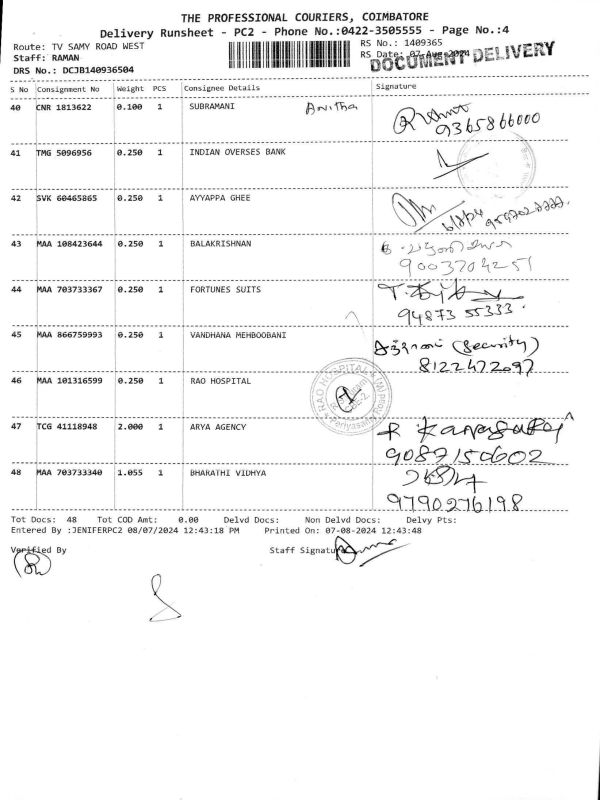 THE PROFESSIONAL COURIERS, COIMBATORE
Delivery Runsheet - PC2 - Phone No.:0422-3505555 - Page No.:4
Route: TV SAMY ROAD WEST RS No.: 1409365
Staff: RAMAN RS Date: 07-Aug-2024
DOCUMENT DELIVERY
DRS No.: DCJB140936504
S No Consignment No Weight PCS Consignee Details Signature
40 CNR 1813622 0.100 1 SUBRAMANI Anitha
9365866000
41 TMG 5096956 0.250 1 INDIAN OVERSES BANK
42 SVK 60465865 0.250 1 AYYAPPA GHEE
43 MAA 108423644 0.250 1 BALAKRISHNAN
9003704251
44 MAA 703733367 0.250 1 FORTUNES SUITS
94873 55333.
45 MAA 866759993 0.250 1 VANDHANA MEHBOOBANI
(Security)
8122472097
46 MAA 101316599 0.250 1 RAO HOSPITAL
RAO HOSPITAL
47 TCG 41118948 2.000 1 ARYA AGENCY
9087150602
48 MAA 703733340 1.055 1 BHARATHI VIDHYA
9790276198
Tot Docs: 48 Tot COD Amt: 0.00 Delvd Docs: Non Delvd Docs: Delvy Pts:
Entered By :JENIFERPC2 08/07/2024 12:43:18 PM Printed On: 07-08-2024 12:43:48
Verified By Staff Signature